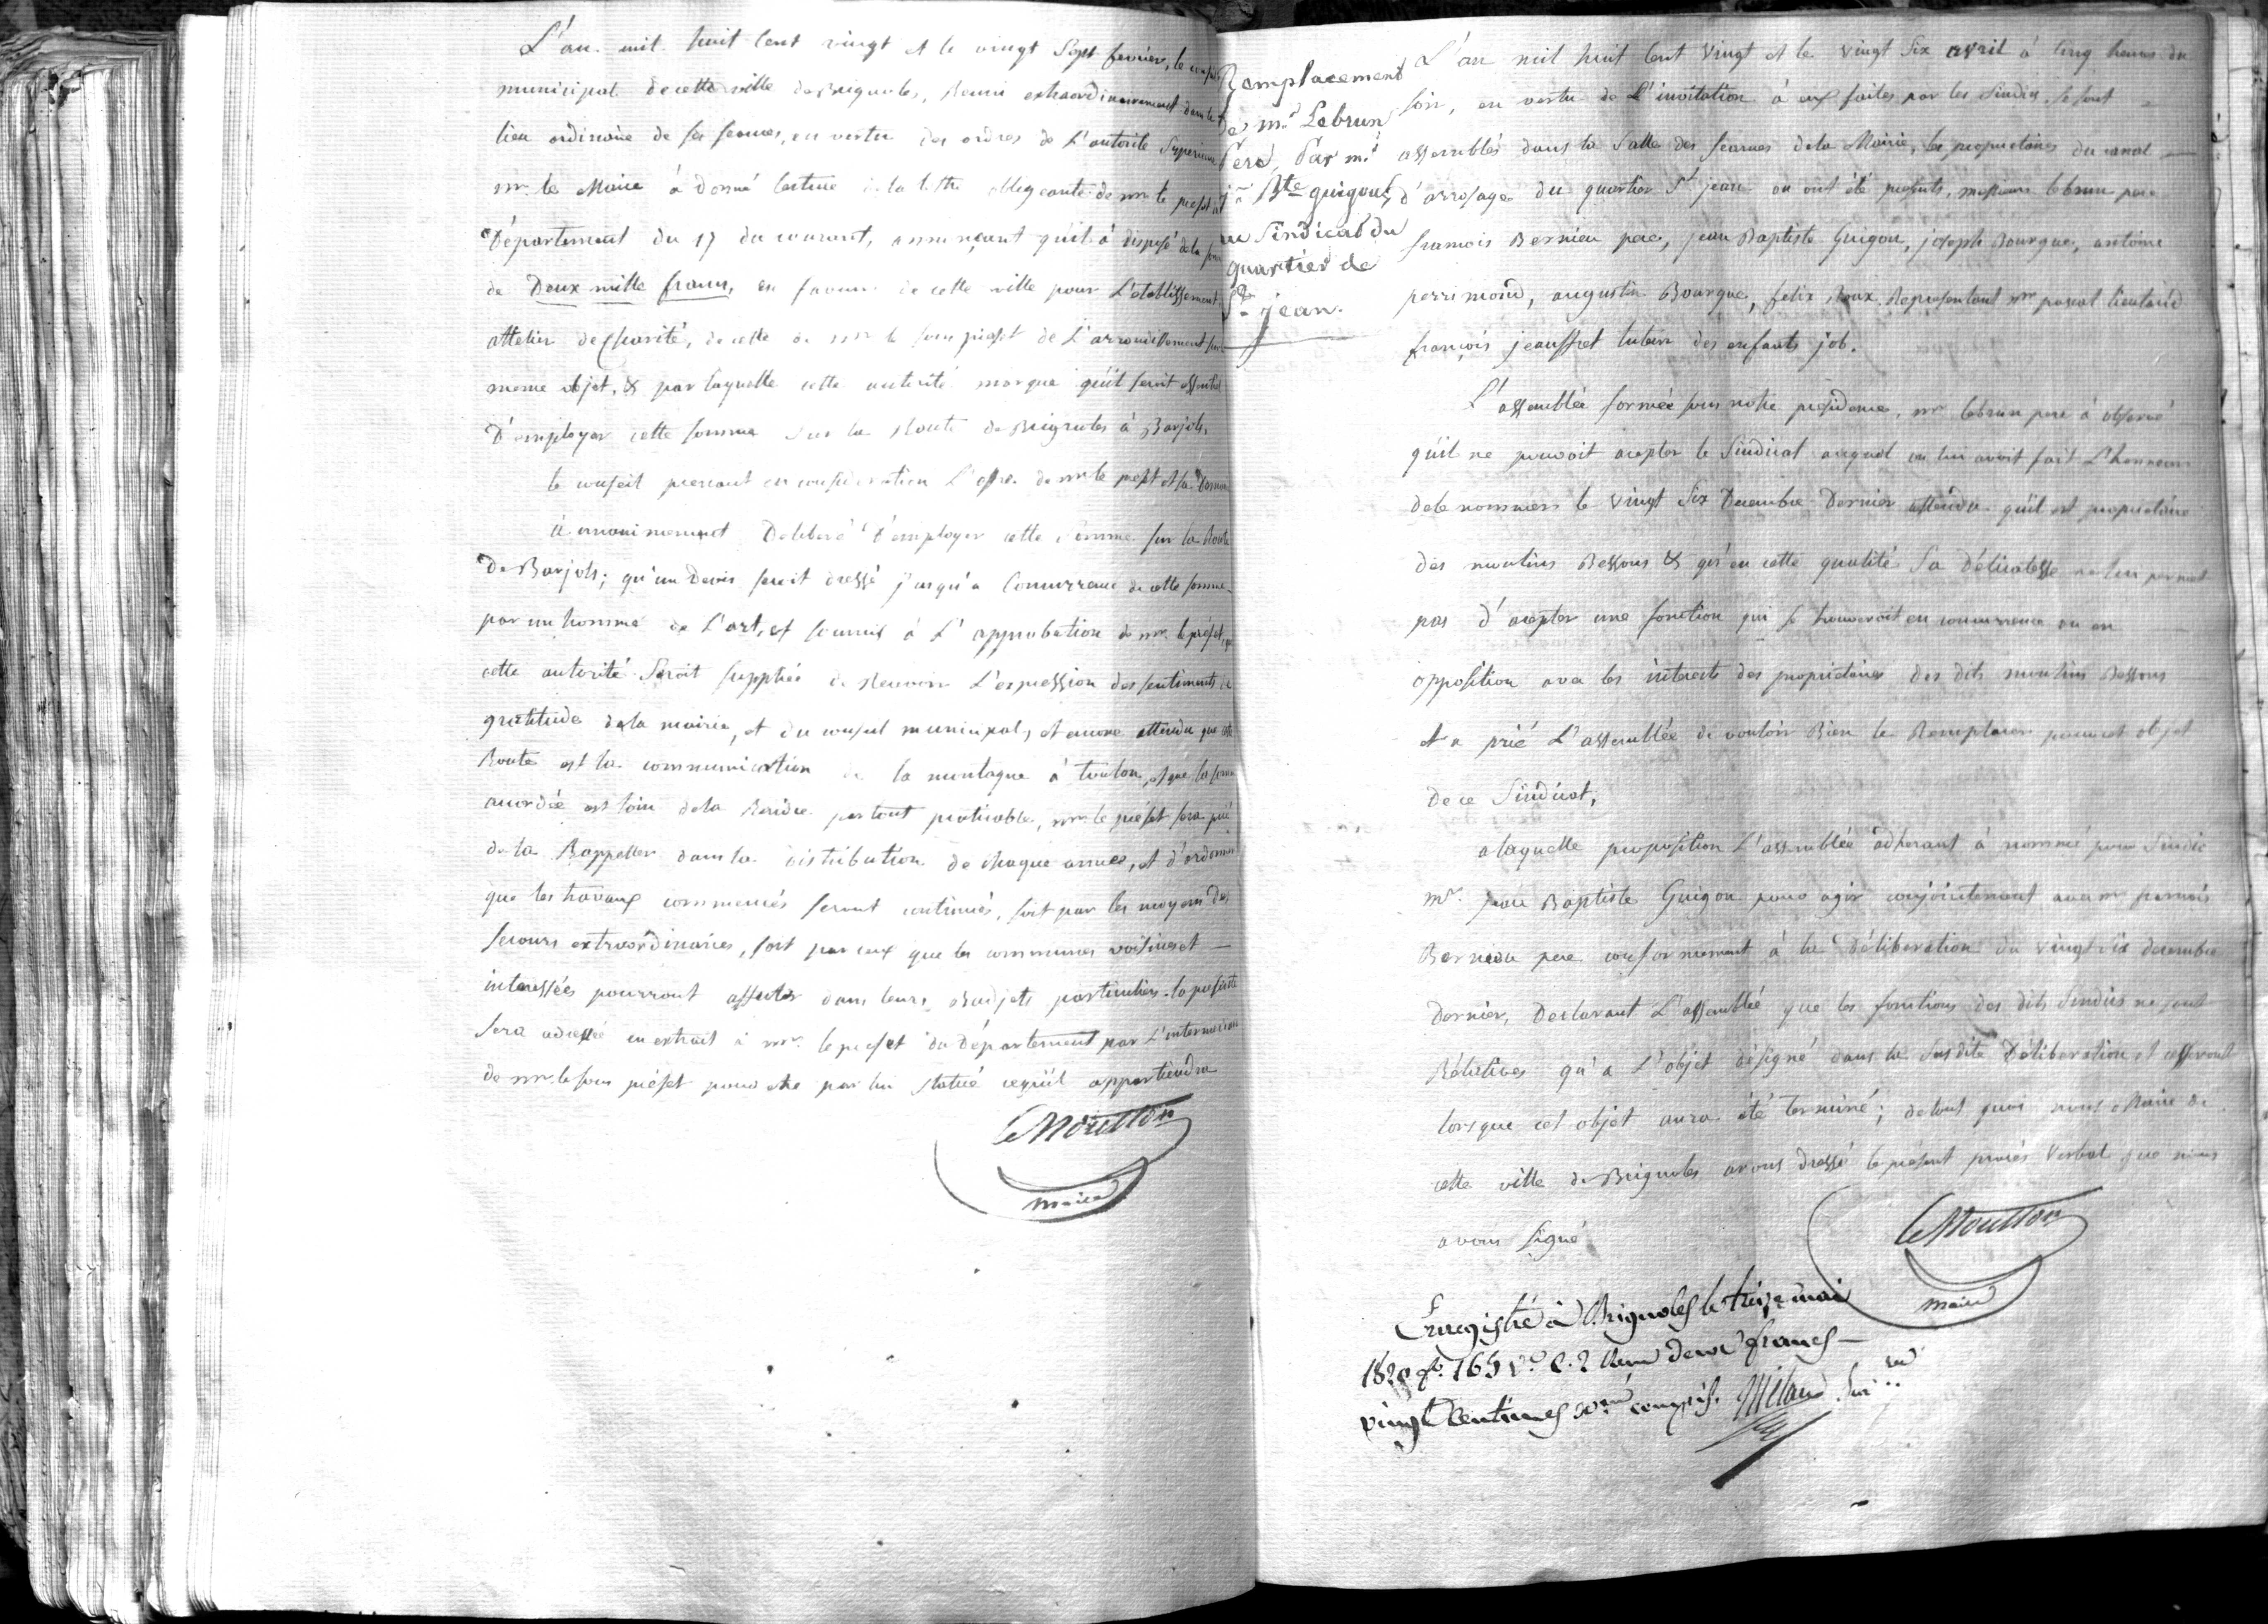 L'an mil huit Cent vingt et le vingt Sept fevrier, le conseil
municipal de cette ville de Brignoles, Reuni extraordinairement dans le
lieu ordinaire de ses seances, en vertu des ordres de L'autorité Superieure
mr. le Maire à donné lecture de la lettre obligeante de mr le prefet du
Département du 17 du courant, annonçant qu'il à disposé de la
de Deux mille francs, en faveur de cette ville pour L'établissement
attelier de Charité, de celle de mr le sous prefet de L'arrondissement sur
meme objet, & par laquelle cette autorité marque qu'il seroit essentiel
D'employer cette somme sur la Route de Brignoles à Barjols.
le conseil prenant en consideration L'offre de mr le prefet et sa
à unanimement Deliberé D'employer cette somme sur la Route
De Barjols; qu'un Devis seroit dressé jusqu'a Concurrence de cette somme
par un homme de L'art, et soumis à L'approbation de mr. le prefet, que
cette autorité Seroit suppliée de Recevoir L'expression des sentiments de
gratitude de la mairie, et du conseil municipal, et encore attendu que cette
Route est la communication de la montagne à toulon, et que la somme
accordée est loin de la Rendre partout praticable, mr. le préfet sera prié
de la Rappeller dans la distribution de chaque année, et d'ordonner
que les travaux commencés seront continués, soit par les moyens des
secours extraordinaires, soit par ceux que les communes voisines et
interessées pourront affecter dans leurs Budjets particuliers. la presente
Sera adressée en extrait à mr. le prefet du Département par L'intermediaire
de mr. le sous préfet pour etre par lui statué ce qu'il appartiendra
Le Moutton
maire
Remplacement
de mr. Lebrun
Pere, Par mr.
jn. Bte guigou,
au Sindicat du
quartier de
St. jean.
L'an mil huit Cent Vingt et le vingt Six avril à Cinq heures du
soir, en vertu de L'invitation à eux faites par les Sindics, se sont
assemblés dans la Salle des seances de la Mairie, les proprietaires du canal
d'arrosage du quartier St. jean ou ont été presents, messieurs lebrun pere
françois Bernieu pere, jean Baptiste Guigou, joseph Bourgue, antoine
perrimond, augustin Bourgue, felix Roux Representant mr. pascal lieutaud
françois jeauffret tuteur des enfants job.
L'assemblée formée sous notre présidence, mr. lebrun pere à observé
qu'il ne pouvoit accepter le Sindicat auquel on lui avoit fait L'honneur
de le nommer le vingt Six Decembre Dernier attendu qu'il est proprietaire
des moulins Bessons & qu'en cette qualité Sa Délicatesse ne lui permet
pas d'accepter une fonction qui se trouveroit en concurrence ou en
opposition avec les interets des proprietaires des dits moulins Bessons
et a prié L'assemblée de vouloir Bien le Remplacer pour cet objet
De ce Sindicat,
a laquelle proposition L'assemblée adherant à nommé pour Sindic
mr. jean Baptiste Guigou pour agir conjointement avec mr françois
Bernieu pere conformement à la Déliberation du vingt six decembre
Dernier, Declarant L'assemblée que les fonctions des dits Sindics ne sont
Rélatives qu'a L'objet désigné dans la Susdite Déliberation et cesseront
lorsque cet objet aura été terminé; de tout quoi nous Maire de
cette ville de Brignoles avons dressé le présent procés Verbal que nous
avons signé
Le Moutton
maire
Enregistré à Brignoles le treize mai
1820 fo. 165 Vo. C. 2 Reçu deux francs
vingt Centimes Xme. compris.